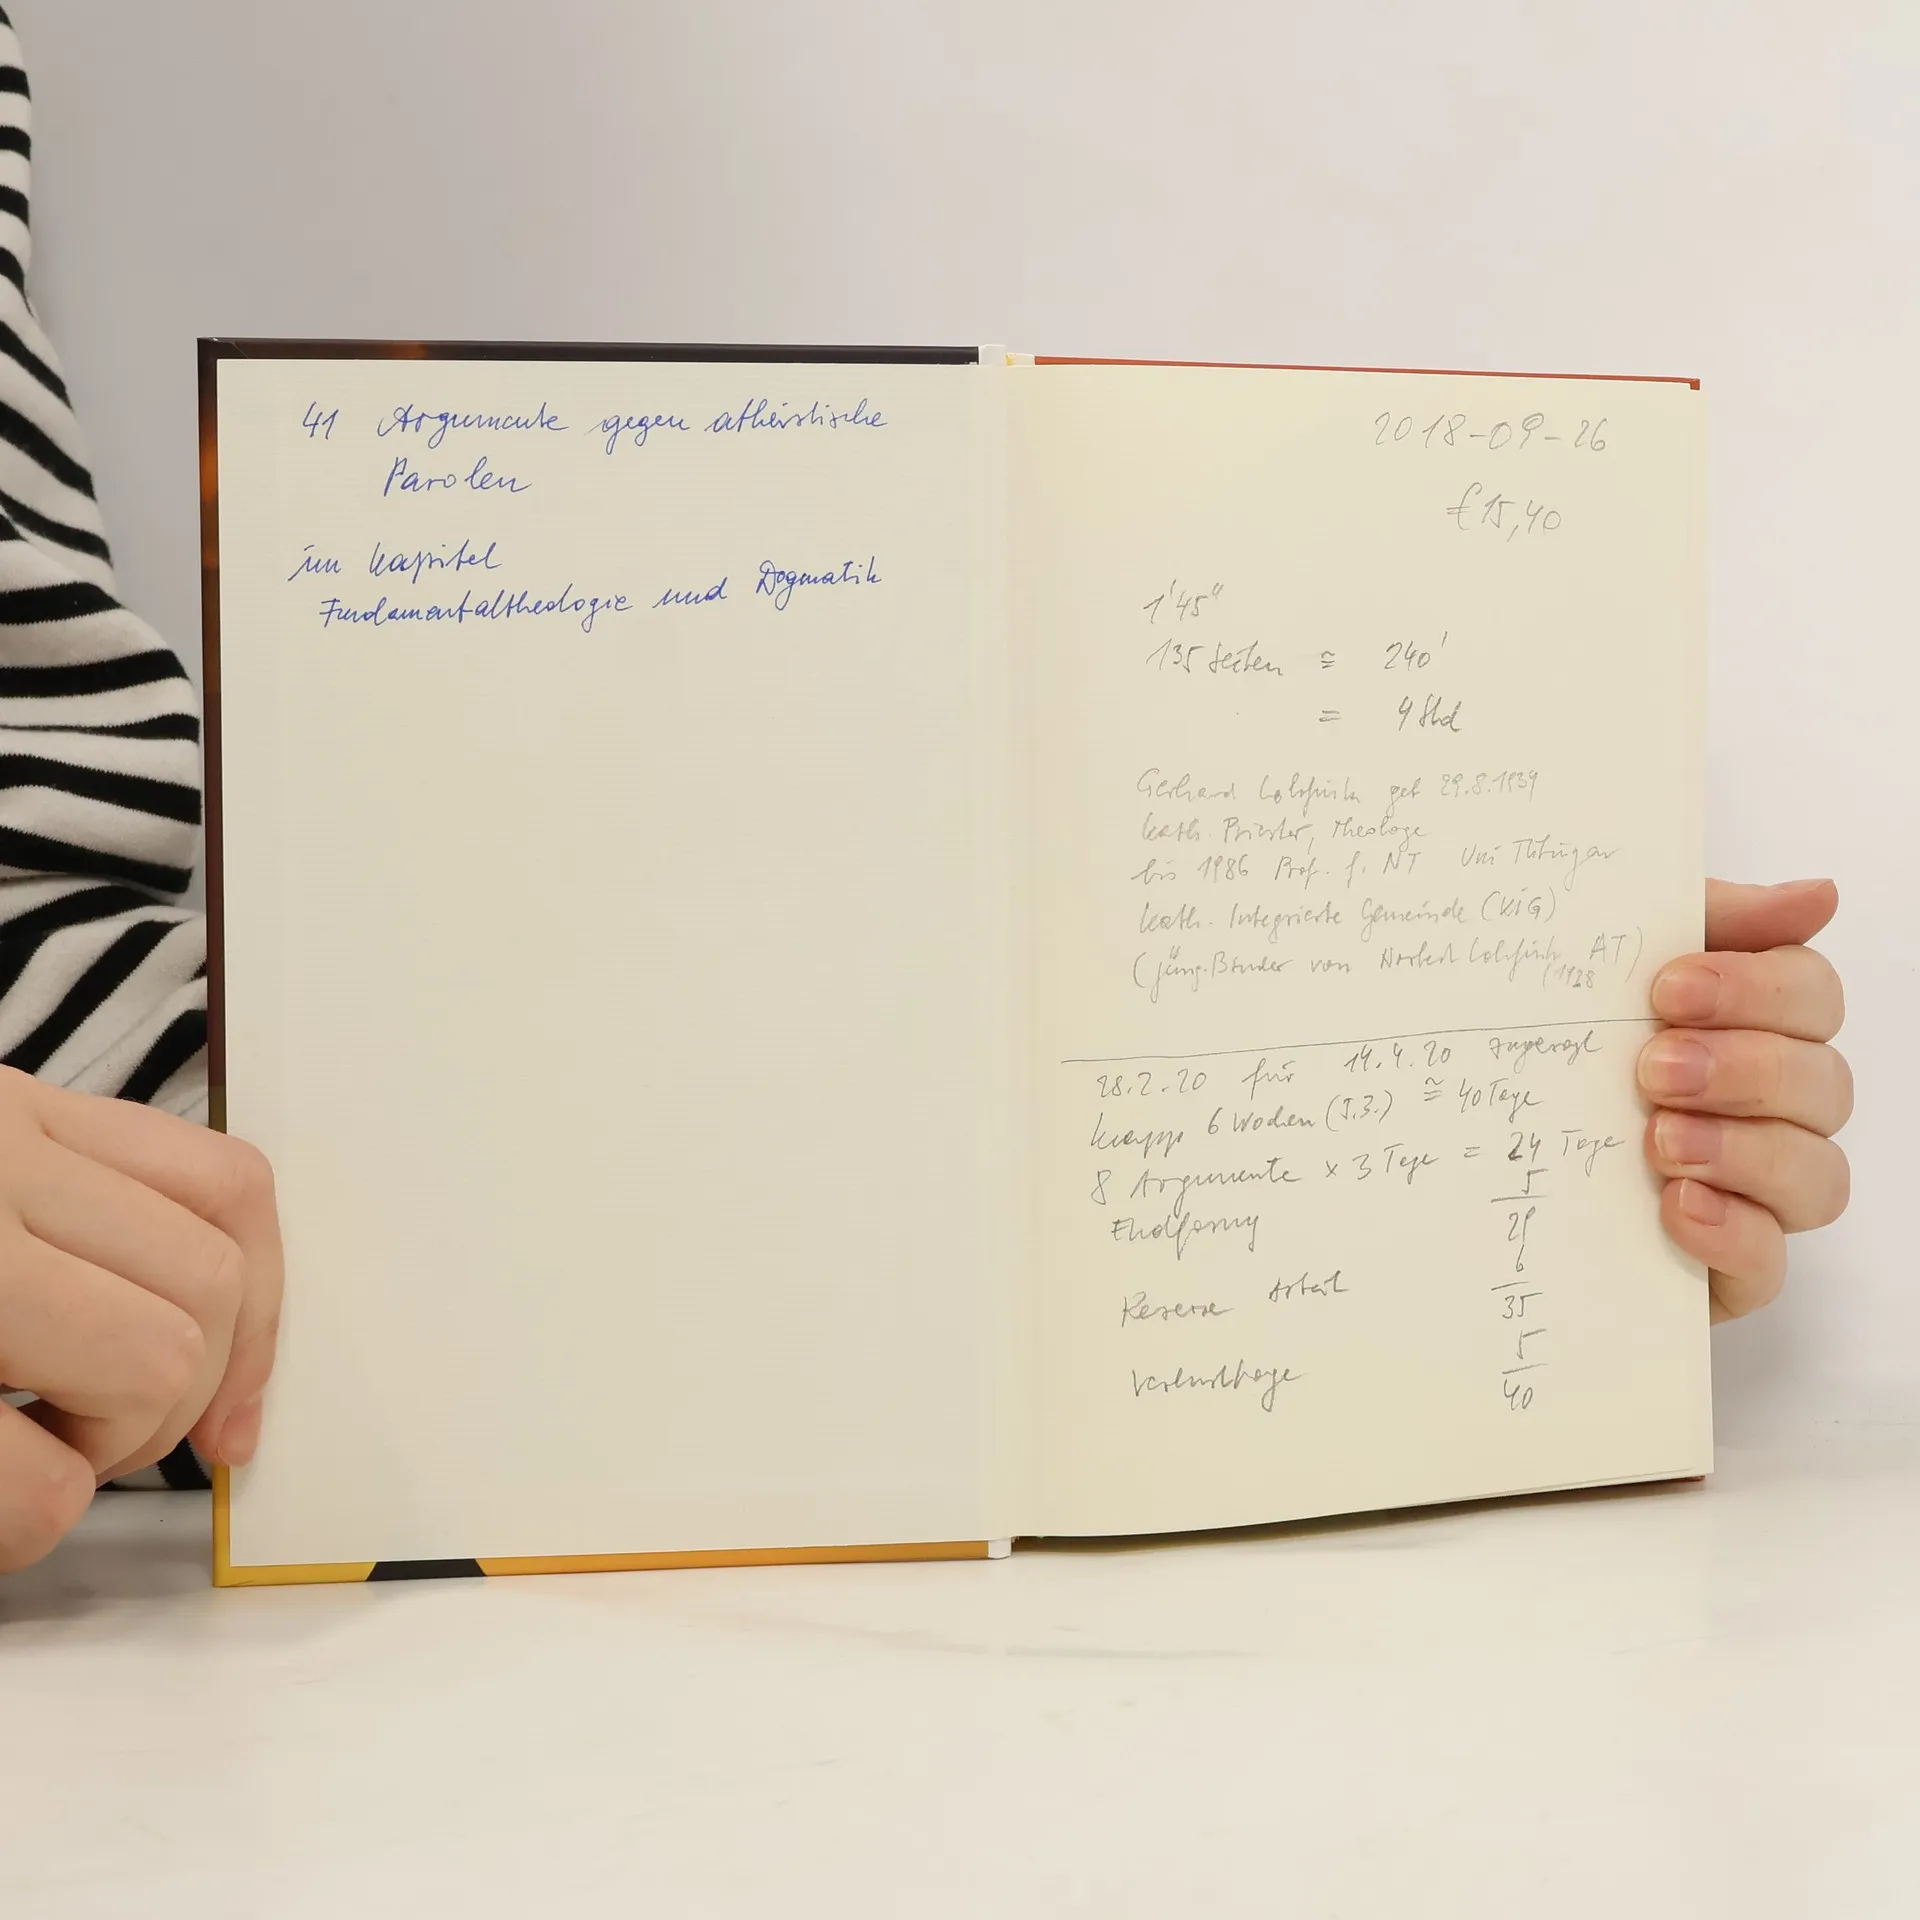 41 Argumente gegen atheistische
Parolen
im Kapitel
Fundamentaltheologie und Dogmatik
2018-09-26
€ 15,40
1'45"
135 Seiten ≅ 240'
= 4 Std
Gerhard Lohfink geb 29.8.1934
kath. Priester, Theologe
bis 1986 Prof. f. NT Uni Tübingen
kath. Integrierte Gemeinde (KIG)
(jüng. Bruder von Norbert Lohfink AT)
(1928
28.2.20 für 14.4.20 zugesagt
knapp 6 Wochen ≅ 40 Tage
8 Argumente x 3 Tage = 24 Tage
5
Endfassung 29
6
Reserve Arbeit 35
5
Verlusttage 40